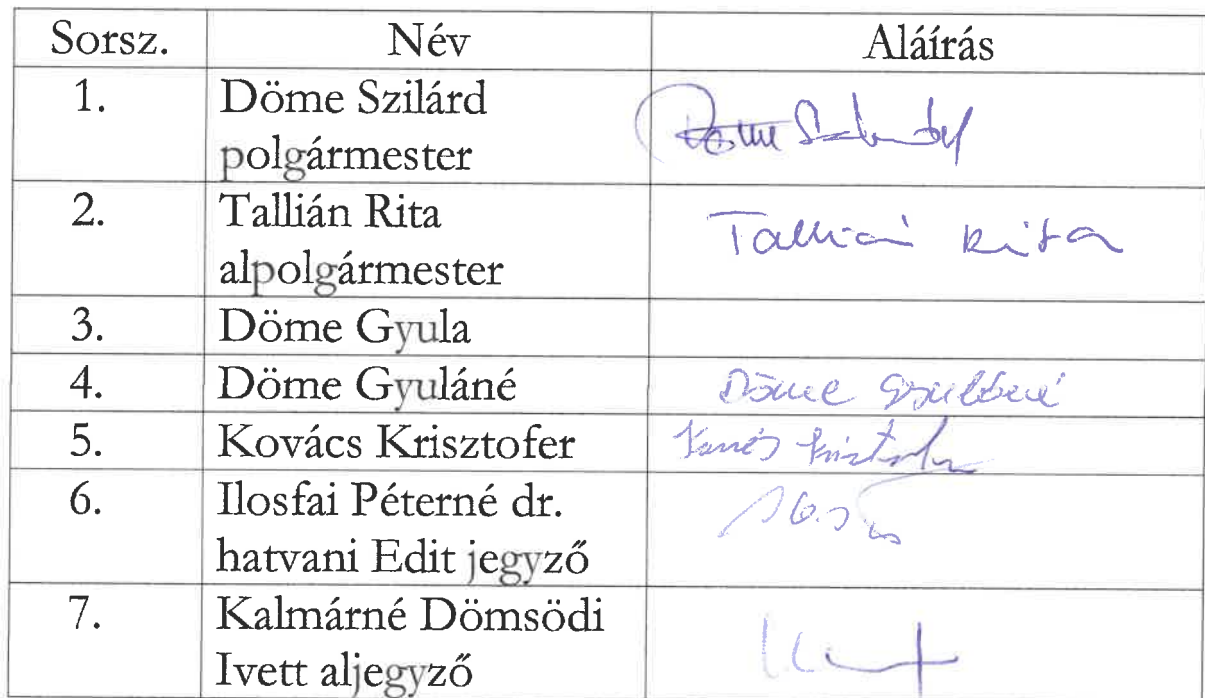 Sorsz. Név Aláírás
1. Döme Szilárd
polgármester
Döme Szilárd
2. Tallián Rita
alpolgármester
Tallián Rita
3. Döme Gyula
4. Döme Gyuláné Döme Gyuláné
5. Kovács Krisztofer Kovács Krisztofer
6. Ilosfai Péterné dr.
hatvani Edit jegyző
7. Kalmárné Dömsödi
Ivett aljegyző